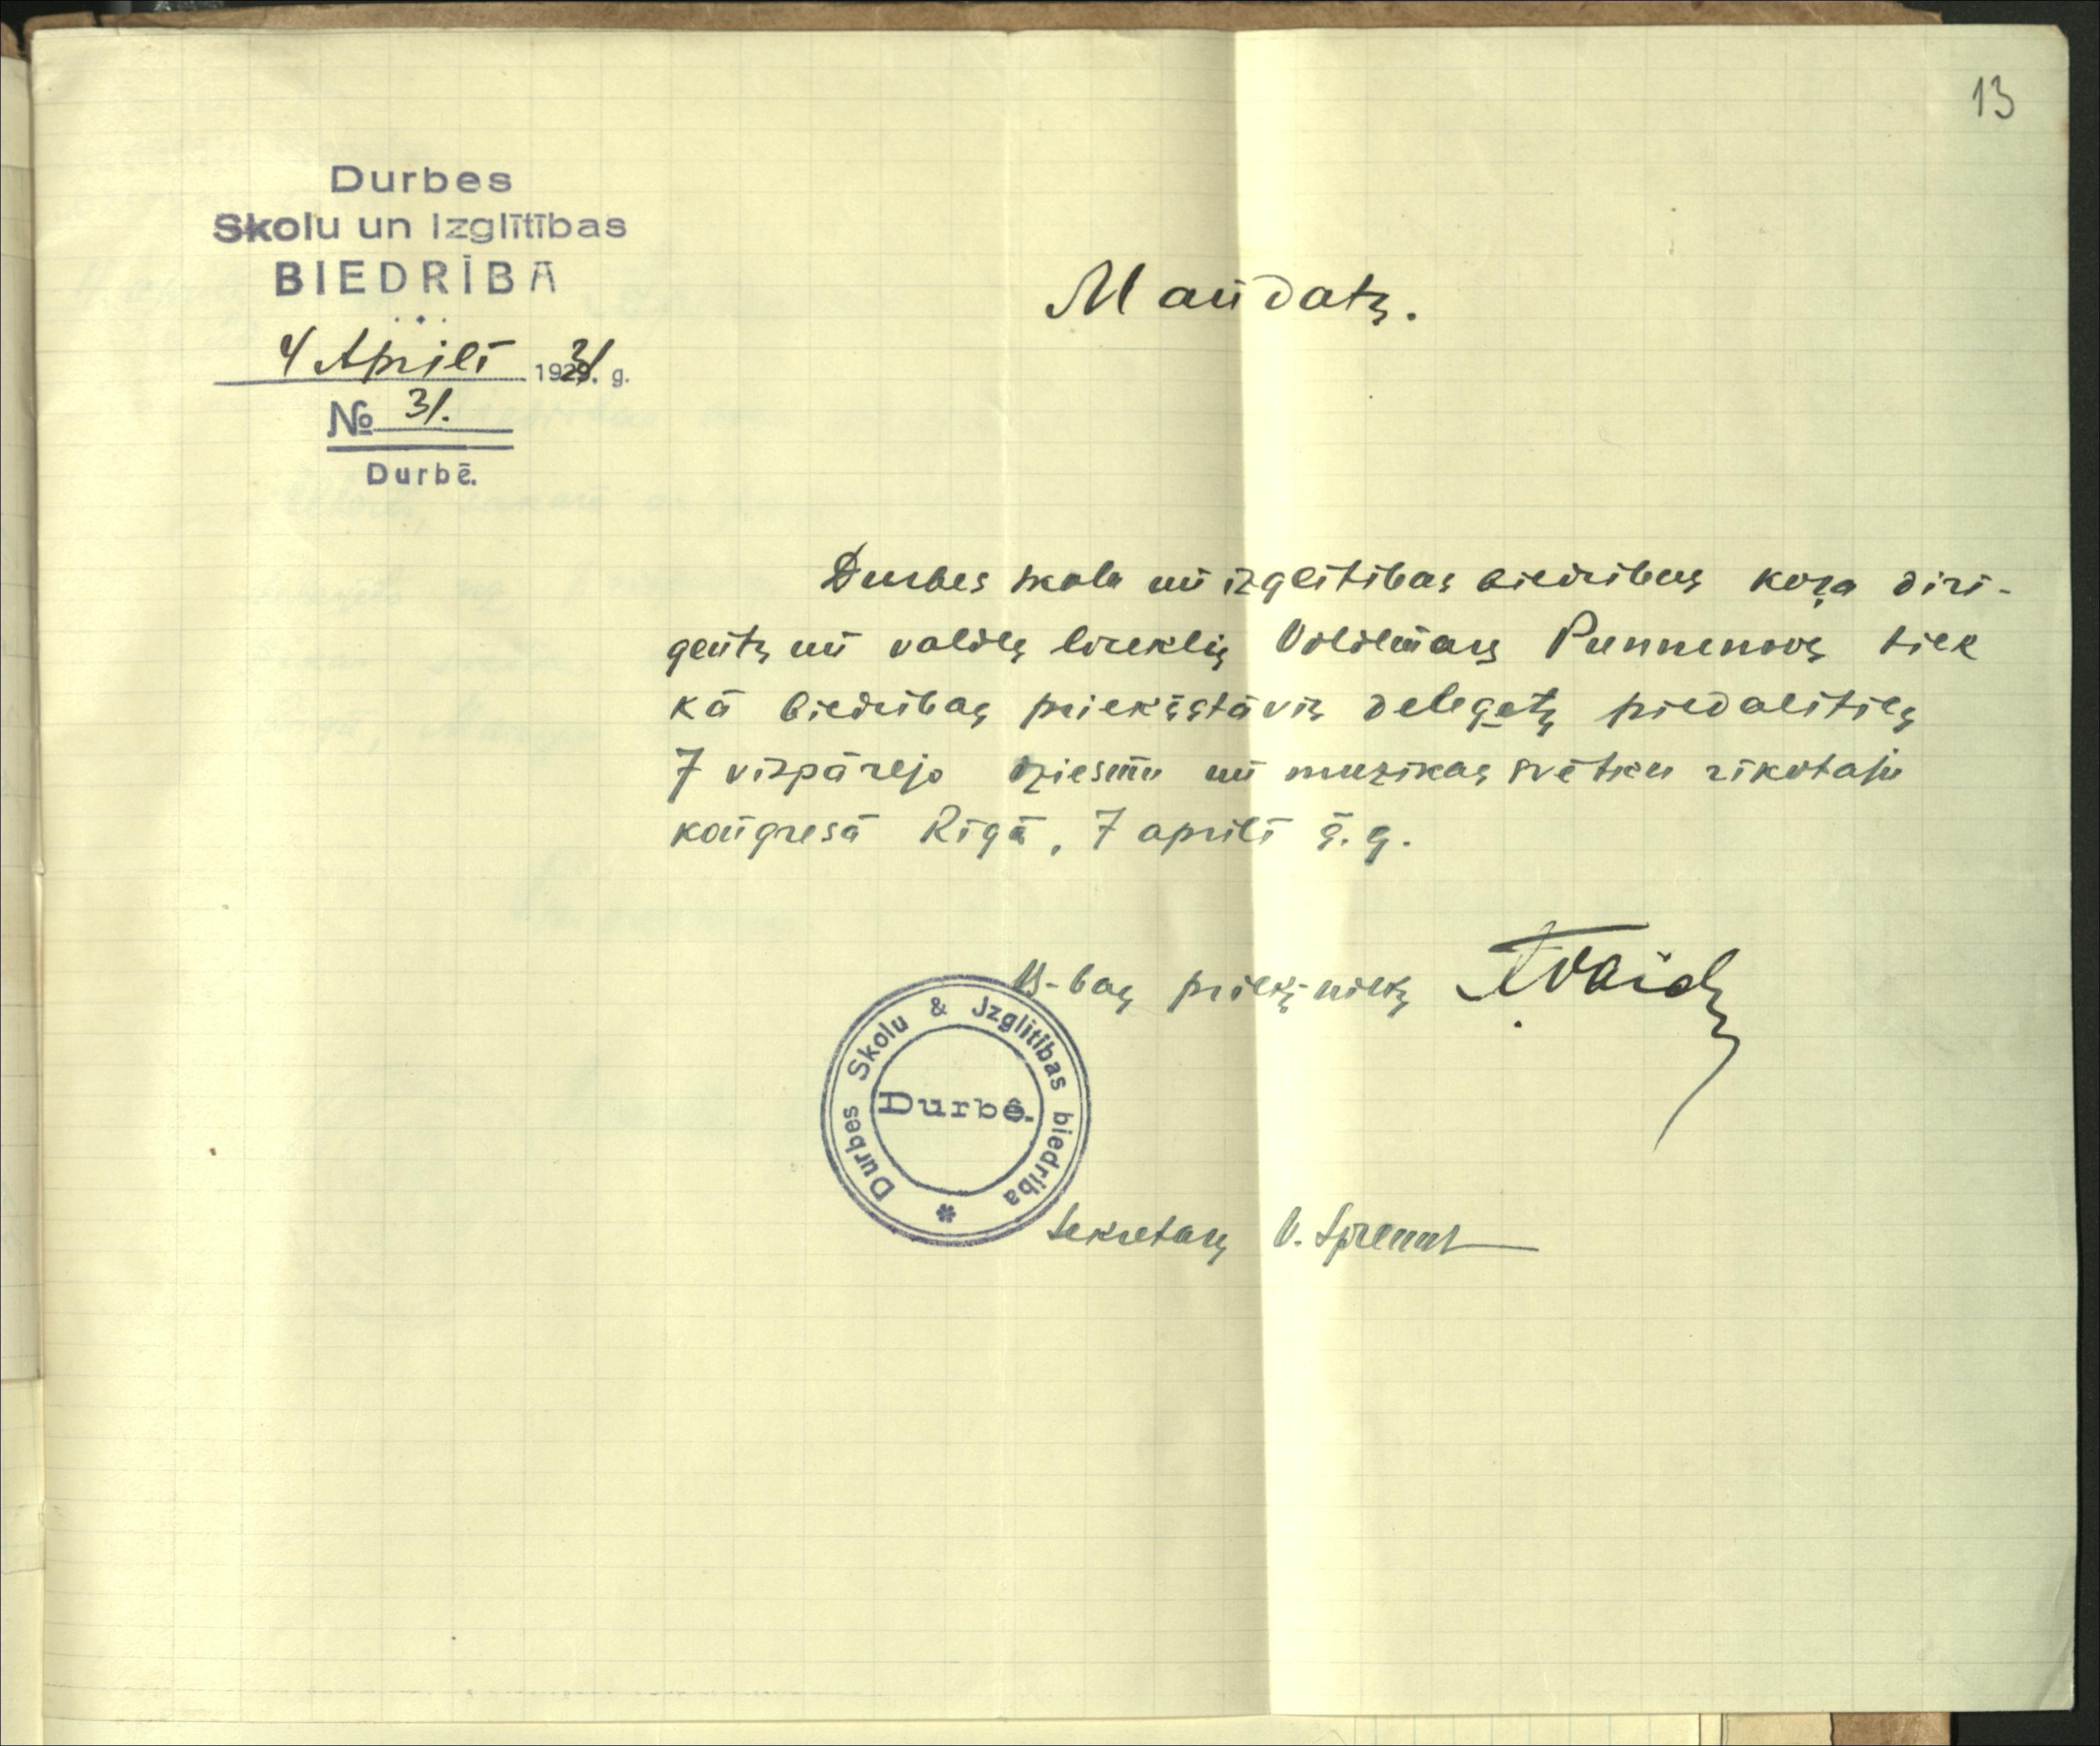 13
Durbes
Skolu un Izglītības
BIEDRĪBA
4 Aprilī 1931. g.
№ 31.
Durbē.
Mandats.
Durbes skolu un izglītības biedrības koŗa diri-
gents un valdes loceklis Voldemars tiek
kā biedrības priekšstāvis delegets piedalīties
7 vispārejo dziesmu un muzikas svētku rīkotaju
kongresā Rīgā, 7 aprilī š. g.
B-bas priekšnieks
Durbes Skolu & Izglītības biedrība
Durbē.
Sekretars V.